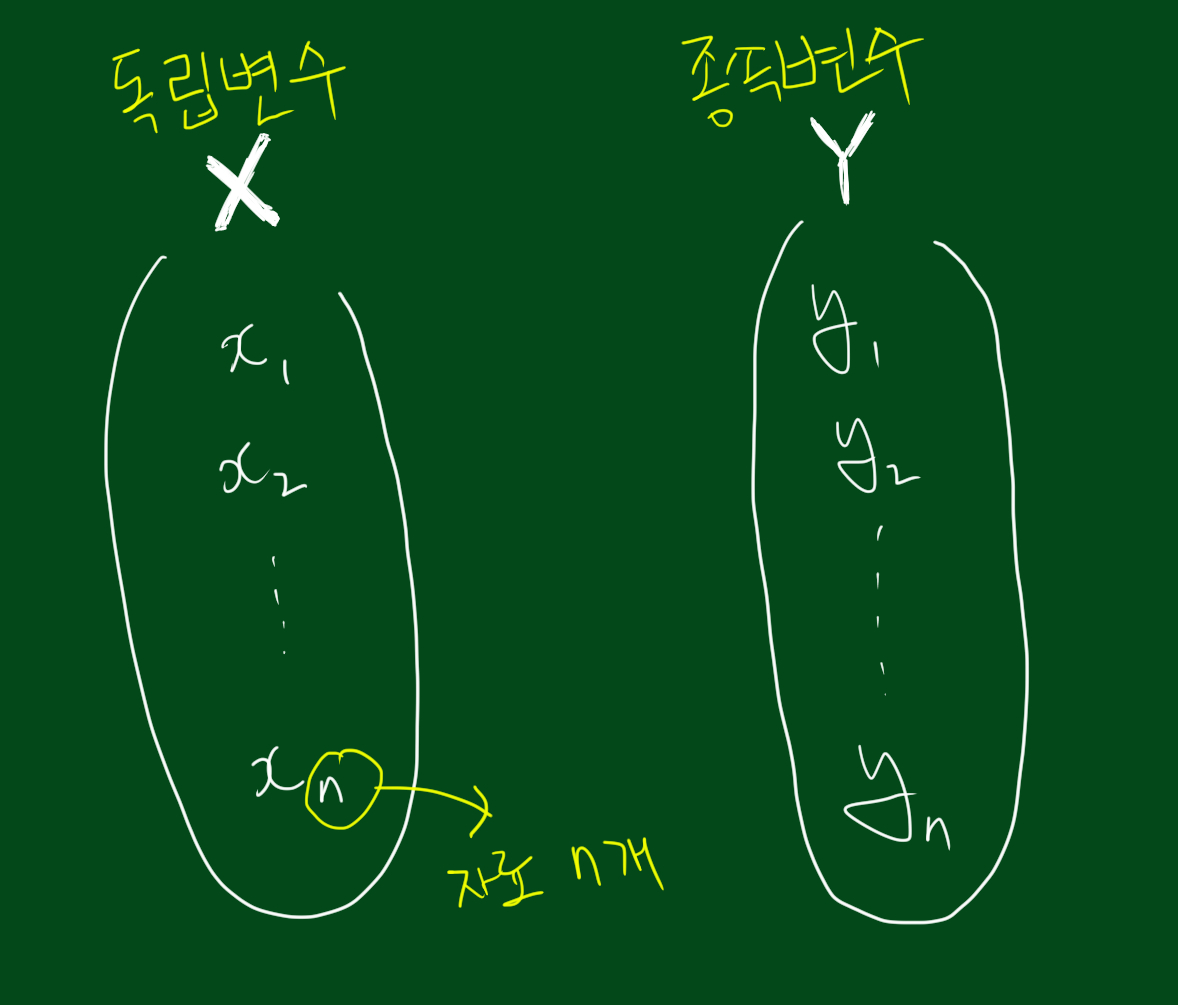 독립변수
X
x₁
x₂
xₙ
자료 n개
종딱변수
Y
y₁
y₂
yₙ